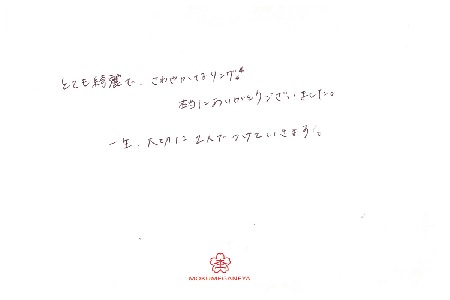 とても綺麗で、さわやかなリング。
本当にありがとうございました。
一生、大切に2人でつけていきます。
MOKUMEGANEYA